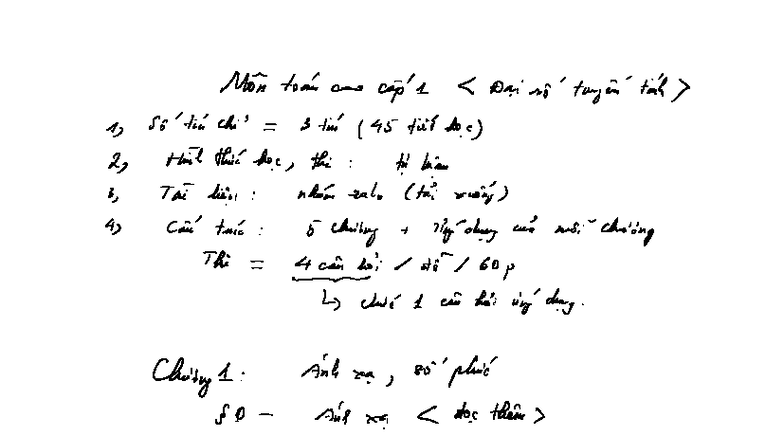 Môn toán cao cấp 1 < Đại số tuyến tính >
1, Số tín chỉ = 3 tín (45 tiết học)
2, Hình thức học, thi : tự luận
3, Tài liệu : nhóm zalo (tải xuống)
4, Cấu trúc : 5 chương + Ứng dụng của mỗi chương
Thi = 4 câu hỏi / đề / 60p
↳ 1 câu hỏi ứng dụng.
Chương 1: Ánh xạ, số phức
§0 - Ánh xạ < đọc thêm >